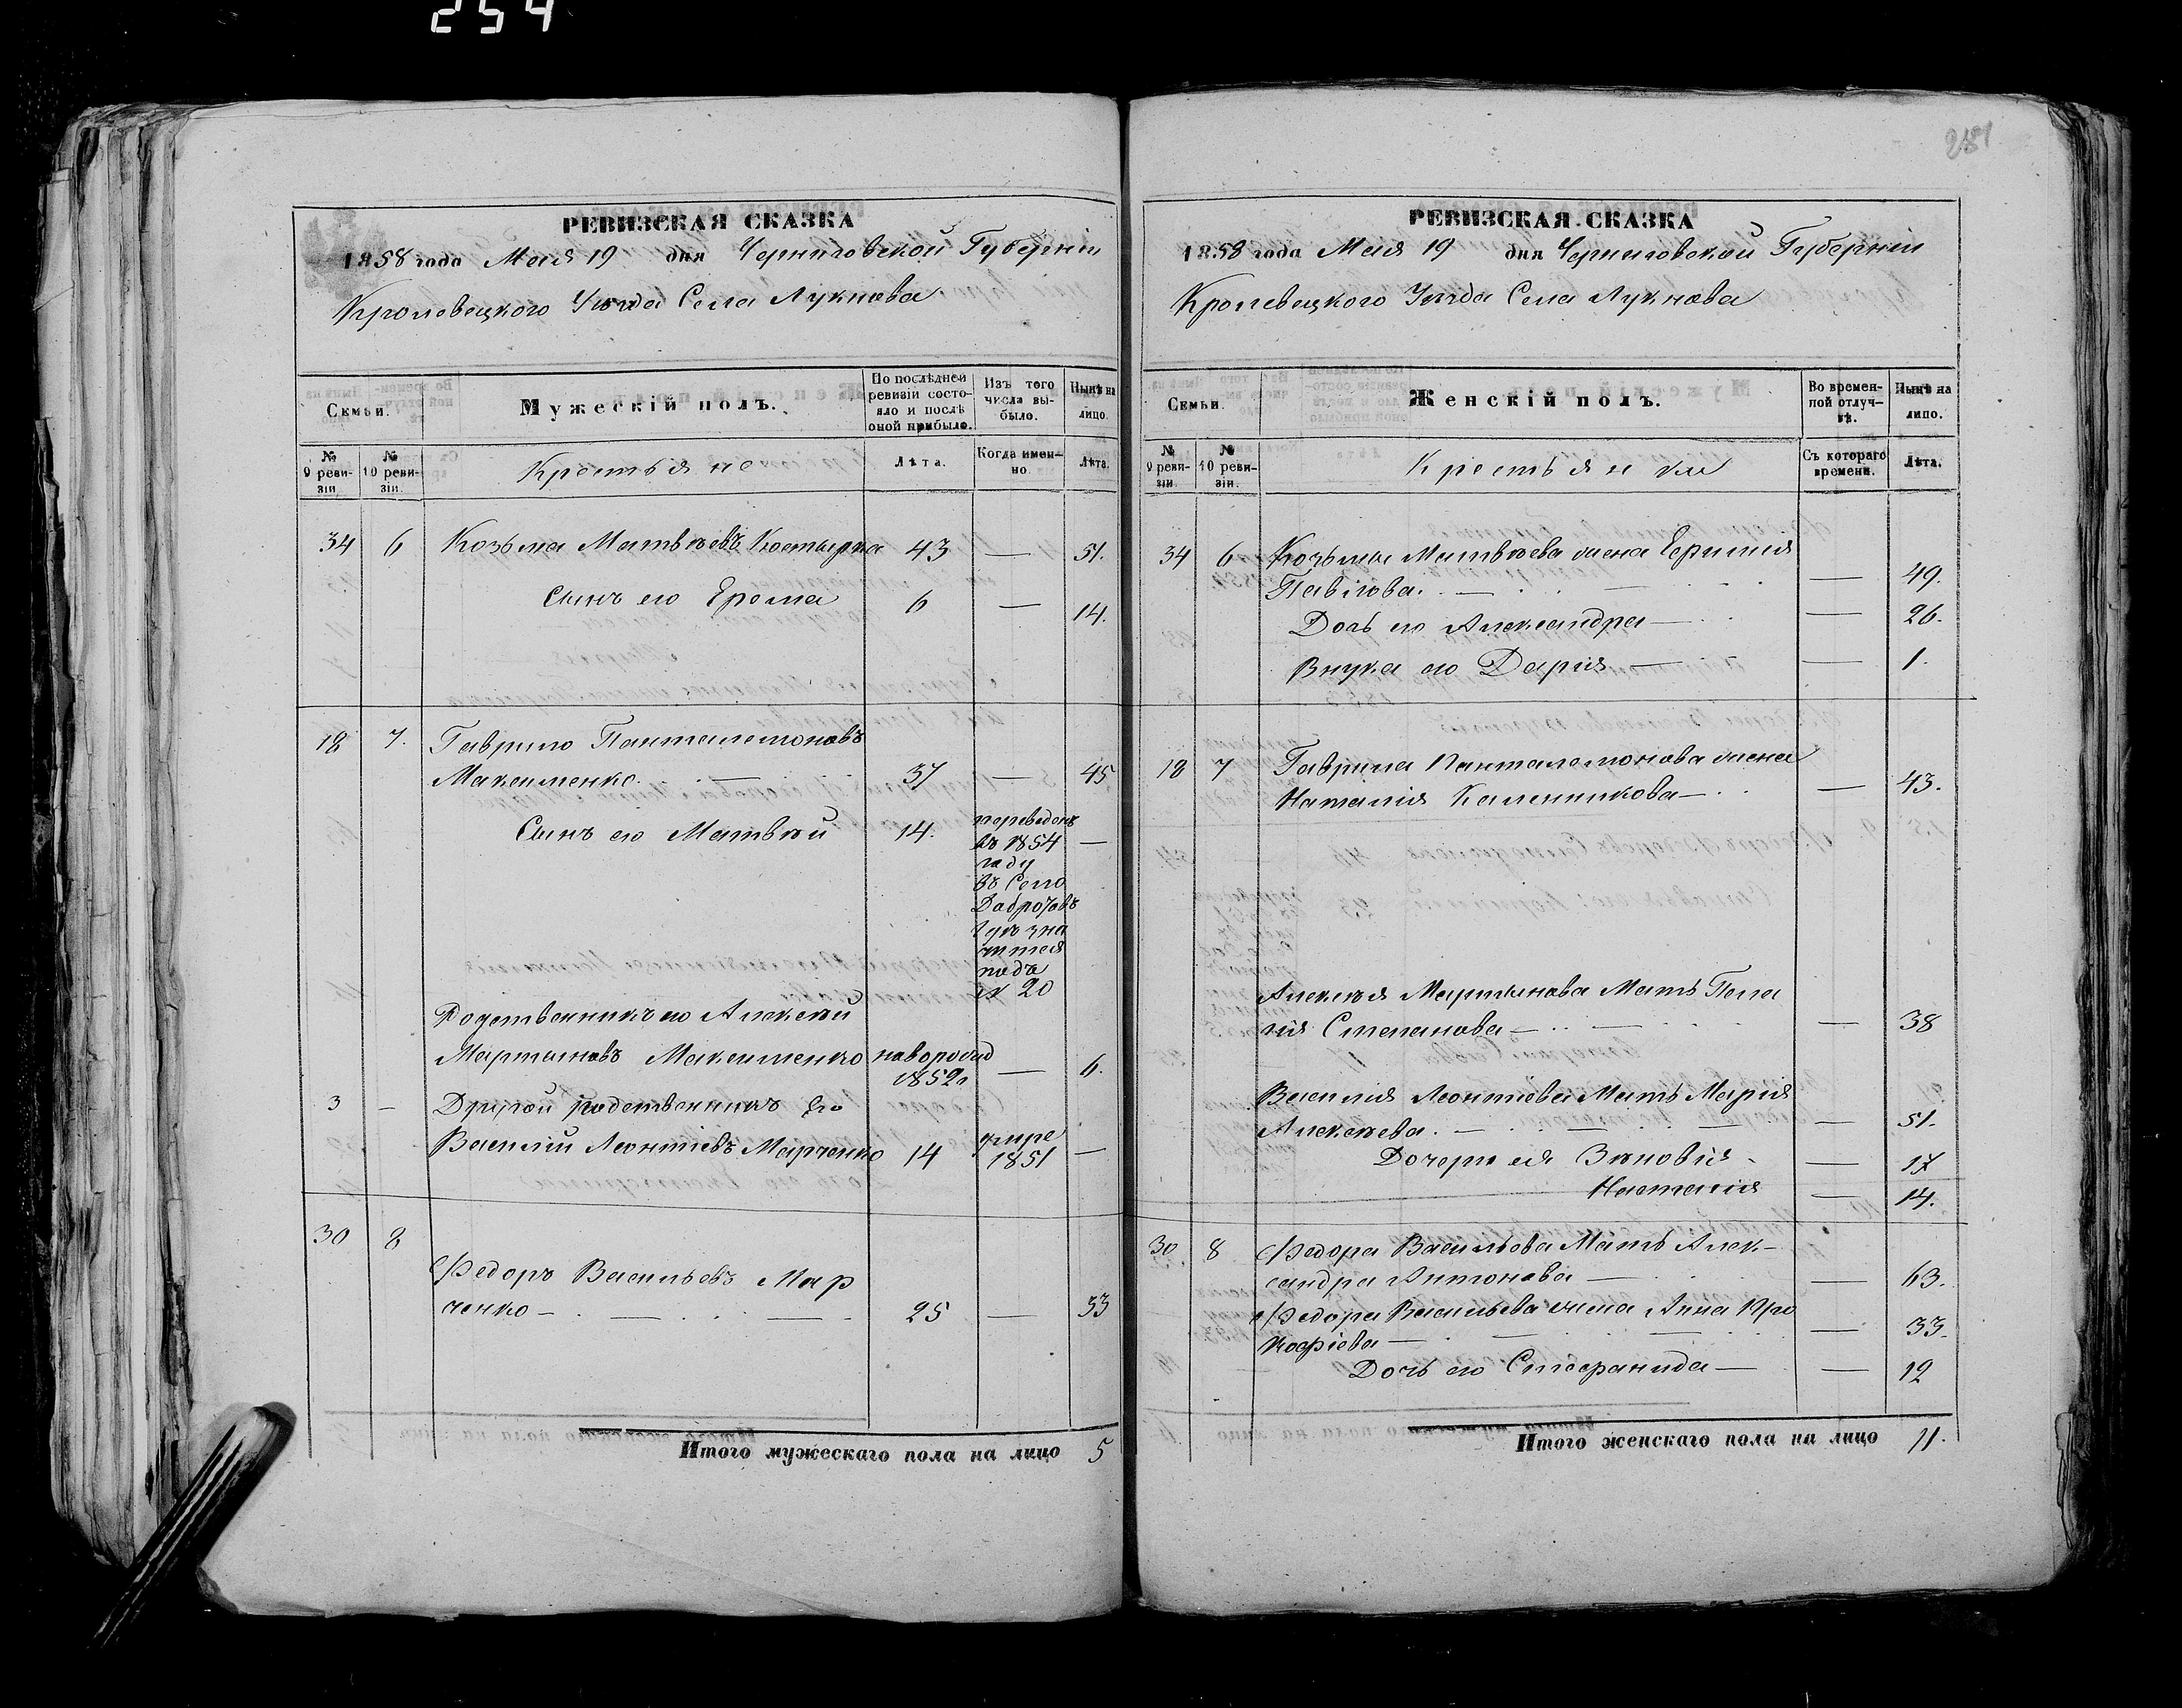 254
281
РЕВИЗСКАЯ СКАЗКА
1858 года Мая 19 дня Черниговской Губерніи
Кролевецкого Уѣзда Села Лукнова
Семьи.
Мужескій полъ.
По послѣдней ревизіи состояло и послѣ оной прибыло.
Изъ того числа выбыло.
Нынѣ на лицо.
№ 9 ревизіи.
№ 10 ревизіи.
Крестьяне
Лѣта.
Когда именно.
Лѣта.
34 6 Козьма Матвѣевъ 43 — 51.
Сынъ его Ерома 6 — 14.
18 7. Гаврило Панталемоновъ
Максименко. — 37 — 45
Сынъ его Матвѣй 14. переведенъ —
въ 1854
году
въ Село
гдѣ зна
чится
подъ
№ 20
Родственникъ его Алексѣй
Мартыновъ Максименко новорожд — 6.
1852
3 — Другой родственникъ Его
Василій Леонтіевъ Марченко 14 умре —
1851
30 8
Федоръ Васильевъ Мар
ченко — 25 — 33
Итого мужескаго пола на лицо 5
РЕВИЗСКАЯ СКАЗКА
1858 года Мая 19 дня Черниговской Губерніи
Кролевецкого Уѣзда Села Лукнова
Семьи.
Женскій полъ.
Во временной отлучкѣ.
Нынѣ на лицо.
№ 9 ревизіи.
№ 10 ревизіи.
Крестьянки
Съ котораго времени.
Лѣта.
34 6 Козьмы Матвѣева жена
Павлова. — — 49.
Дочь его Александра — — 26.
Внука его Дарія — — 1.
18 7 Гаврила Панталемонова жена
Наталія Каленикова — — 43.
Алексѣя Мартынова Мать Пела
гія Степанова — — 38
Василія Леонтіева Мать Марія
Алексѣева. — — 51.
Дочери ея Зѣновія — 17
Наталія — 14.
30 8 Федора Васильева Мать Алек-
сандра Антонова — — 63.
Федора Васильева жена Анна Про
кофіева — — 33.
Дочь его Стефанида — — 12
Итого женскаго пола на лицо 11.